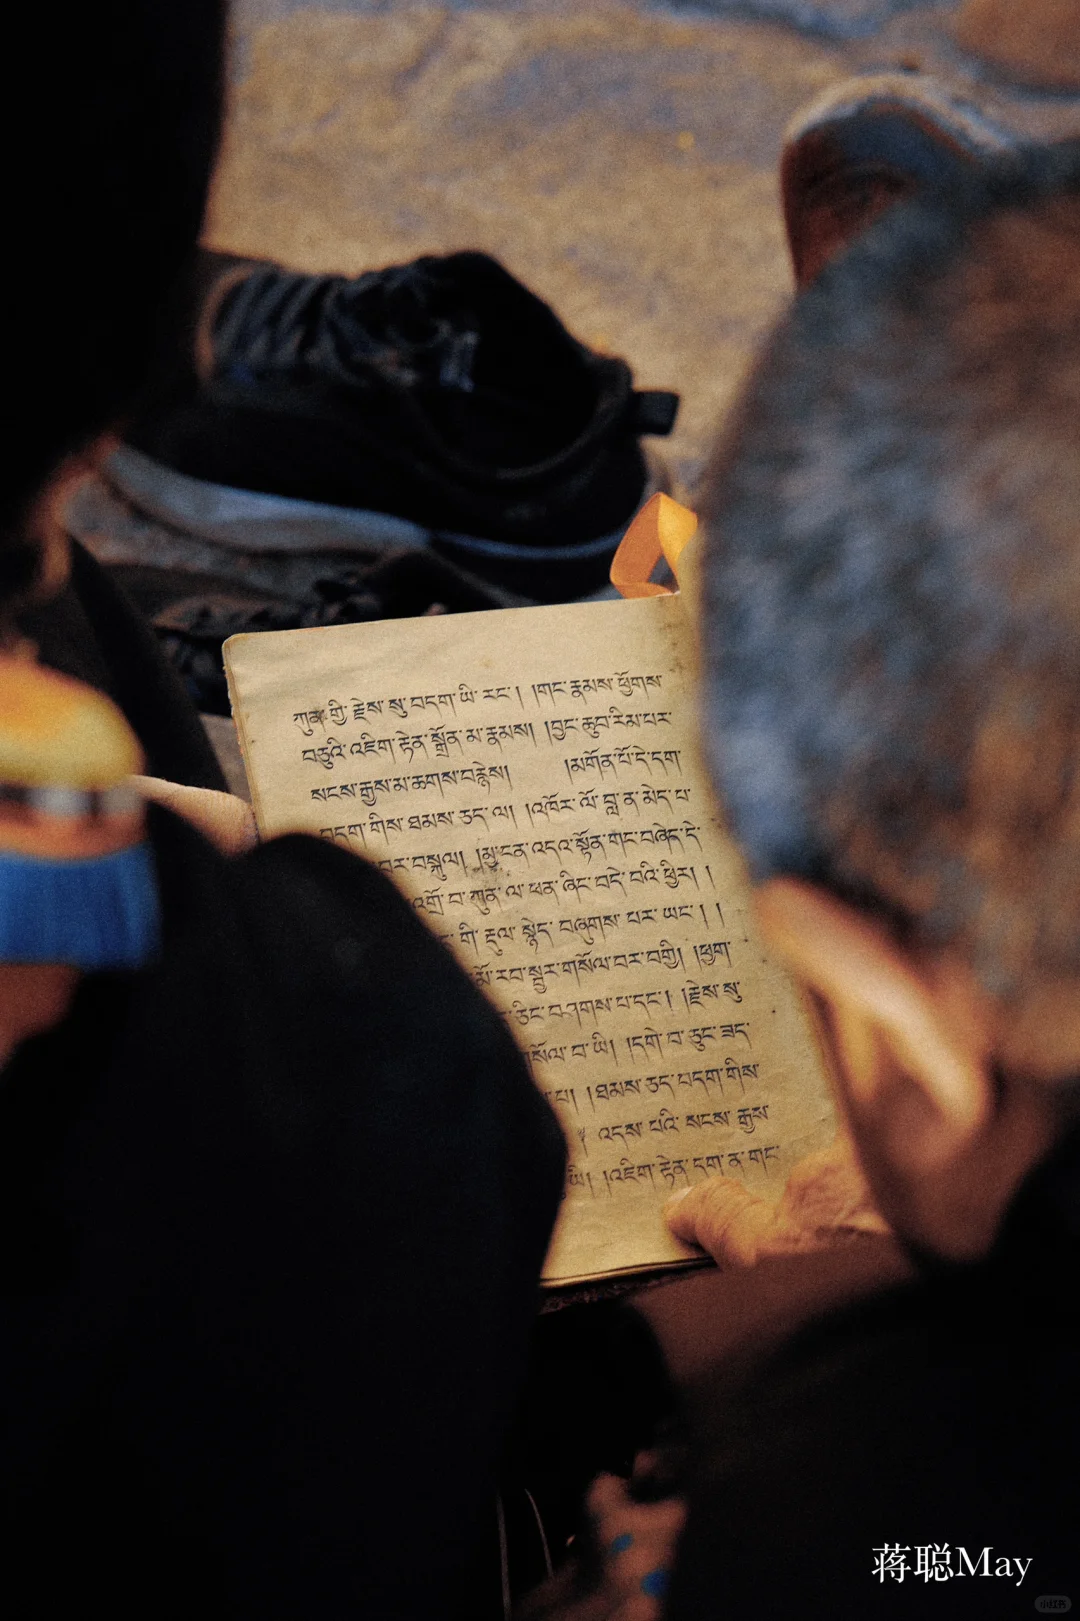 ཀུན་གྱི་རྗེས་སུ་བདག་ཡི་རང་། །གང་རྣམས་ཕྱོགས་
བཅུའི་འཇིག་རྟེན་སྒྲོན་མ་རྣམས། །བྱང་ཆུབ་རིམ་པར་
སངས་རྒྱས་མ་ཆགས་བརྙེས། །མགོན་པོ་དེ་དག་
བདག་གིས་ཐམས་ཅད་ལ། །འཁོར་ལོ་བླ་ན་མེད་པ་
བར་བསྐུལ། །མྱ་ངན་འདའ་སྟོན་གང་བཞེད་དེ་
འགྲོ་བ་ཀུན་ལ་ཕན་ཞིང་བདེ་བའི་ཕྱིར། །
གི་རྡུལ་སྙེད་བཞུགས་པར་ཡང་། །
མོ་རབ་སྦྱར་གསོལ་བར་བགྱི། །ཕྱག་
ཅིང་བཤགས་པ་དང་། །རྗེས་སུ་
གསོལ་བ་ཡི། །དགེ་བ་ཅུང་ཟད་
པ། །ཐམས་ཅད་བདག་གིས་
འདས་པའི་སངས་རྒྱས་
ཡི། །འཇིག་རྟེན་དག་ན་གང་
蒋聪May
小红书